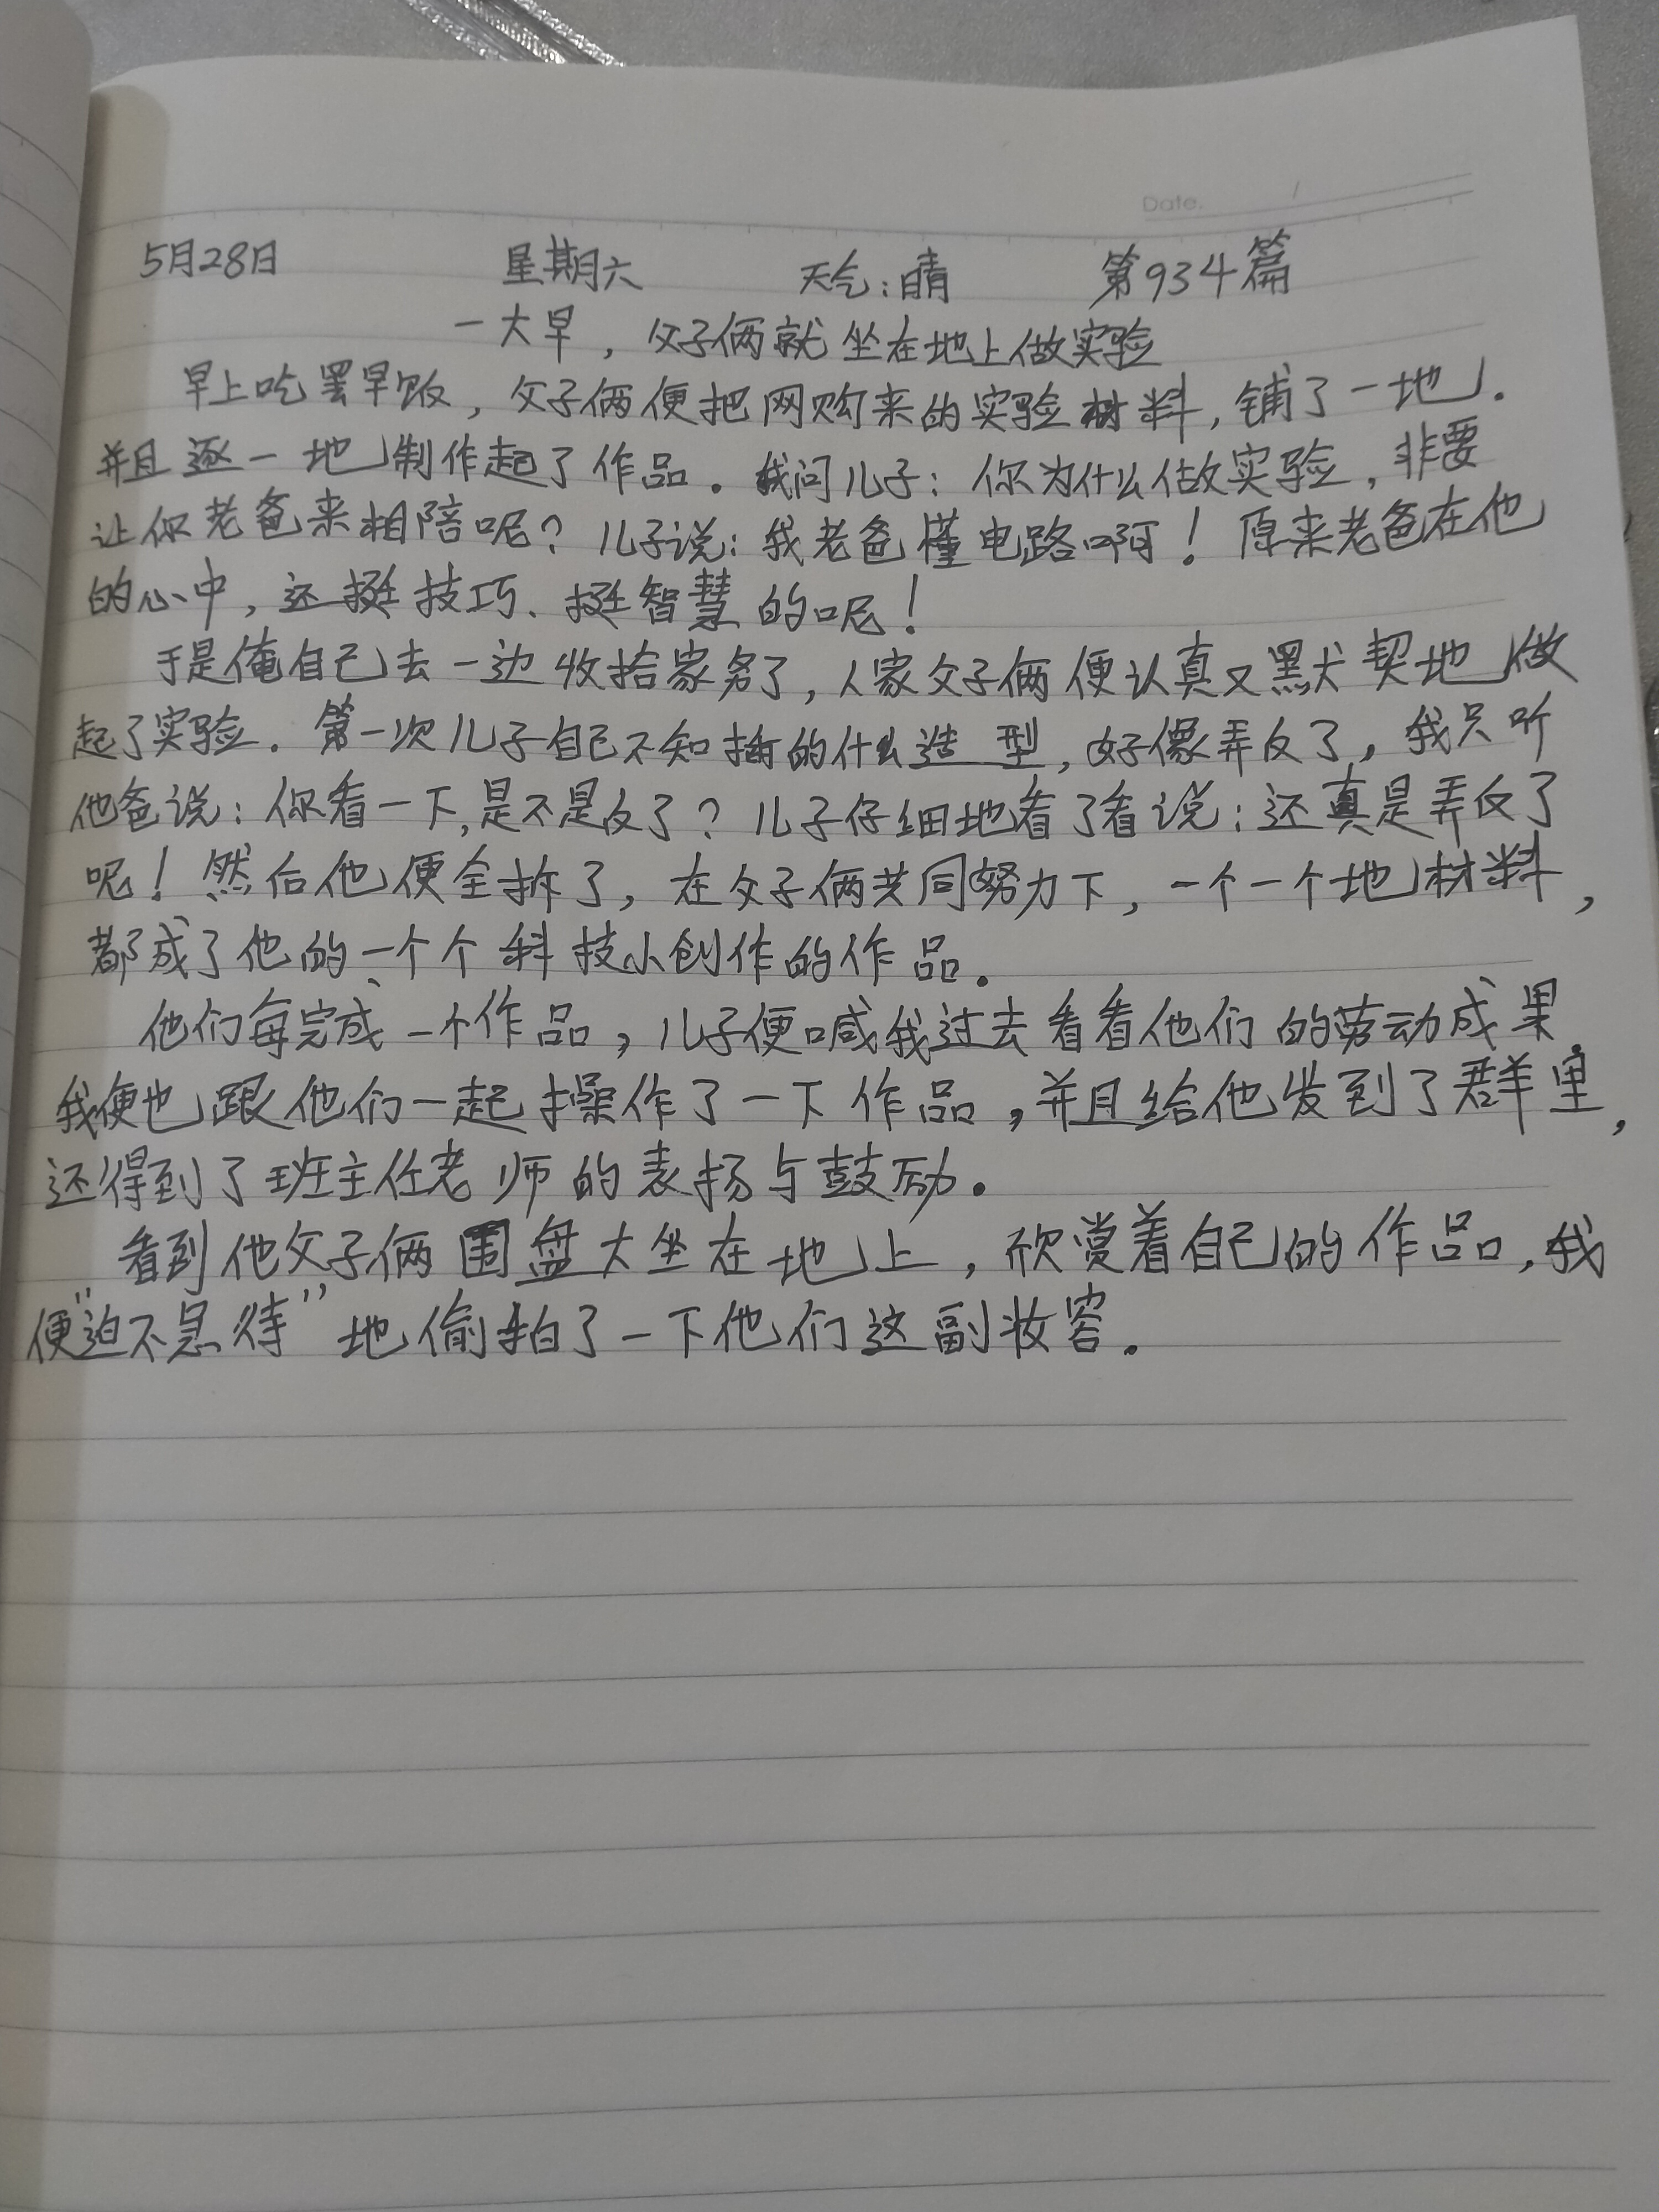 Date. /
5月28日 星期六 天气:晴 第934篇
一大早,父子俩就坐在地上做实验
早上吃罢早饭,父子俩便把网购来的实验材料,铺了一地.
并且逐一地制作起了作品。我问儿子:你为什么做实验,非要
让你老爸来相陪呢?儿子说:我老爸懂电路啊!原来老爸在他
的心中,还挺技巧、挺智慧的呢!
于是俺自己去一边收拾家务了,人家父子俩便认真又默契地做
起了实验.第一次儿子自己不知插的什么造型,好像弄反了,我只听
他爸说:你看一下,是不是反了?儿子仔细地看了看说:还真是弄反了
呢!然后他便全拆了,在父子俩共同努力下,一个一个地材料,
都成了他的一个个科技小创作的作品。
他们每完成一个作品,儿子便喊我过去看看他们的劳动成果,
我便也跟他们一起操作了一下作品,并且给他发到了群里,
还得到了班主任老师的表扬与鼓励。
看到他父子俩围盘大坐在地上,欣赏着自己的作品,我
便"迫不急待"地偷拍了一下他们这副妆容。